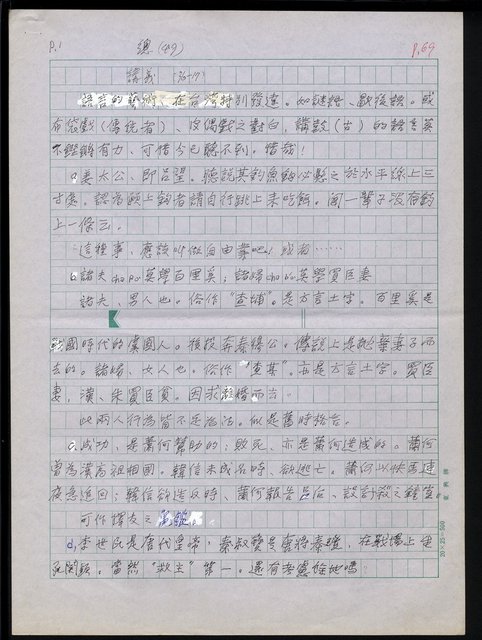 P.1 總(49) P.69
講義(36-17)
語言的藝術、在台灣特別發達。如謎語、歇後語。或
布袋戲(傳統者)、傀儡戲之對白,講鼓(古)的語言莫
不鏗鏘有力、可惜今已聽不到。惜哉!
a.姜太公、即呂望。聽說其釣魚鈎必懸之於水平線上三
寸處。認為願上鈎者請自行跳上來吃餌。聞一輩子沒有釣
上一條云。
這種事、應該叫做自由業吧!或者……
b.諸夫cha po莫學百里奚;諸婦cha bo莫學買臣妻
諸夫、男人也。俗作“查埔”。是方言土字。百里奚是
戰國時代的虞國人。後投奔秦穆公。傳說上是拋棄妻子而
去的。諸婦、女人也。俗作“查某”。亦是方言土字。買臣
妻、漢、朱買臣貧。因求離婚而去。
此兩人行為皆不足為法。似是舊時格言。
c.成功、是蕭何幫助的;敗死、亦是蕭何造成的。蕭何
曾為漢高祖相國。韓信未成名時、欲逃亡。蕭何以快馬連
夜急追回;韓信欲造反時、蕭何報告呂后、設計殺之鐘室。
可作擇友之
d.李世民是唐代皇帝,秦叔寶是唐將秦瓊,在戰場上
當然“救主”第一。還有考慮餘地嗎
20×25=500